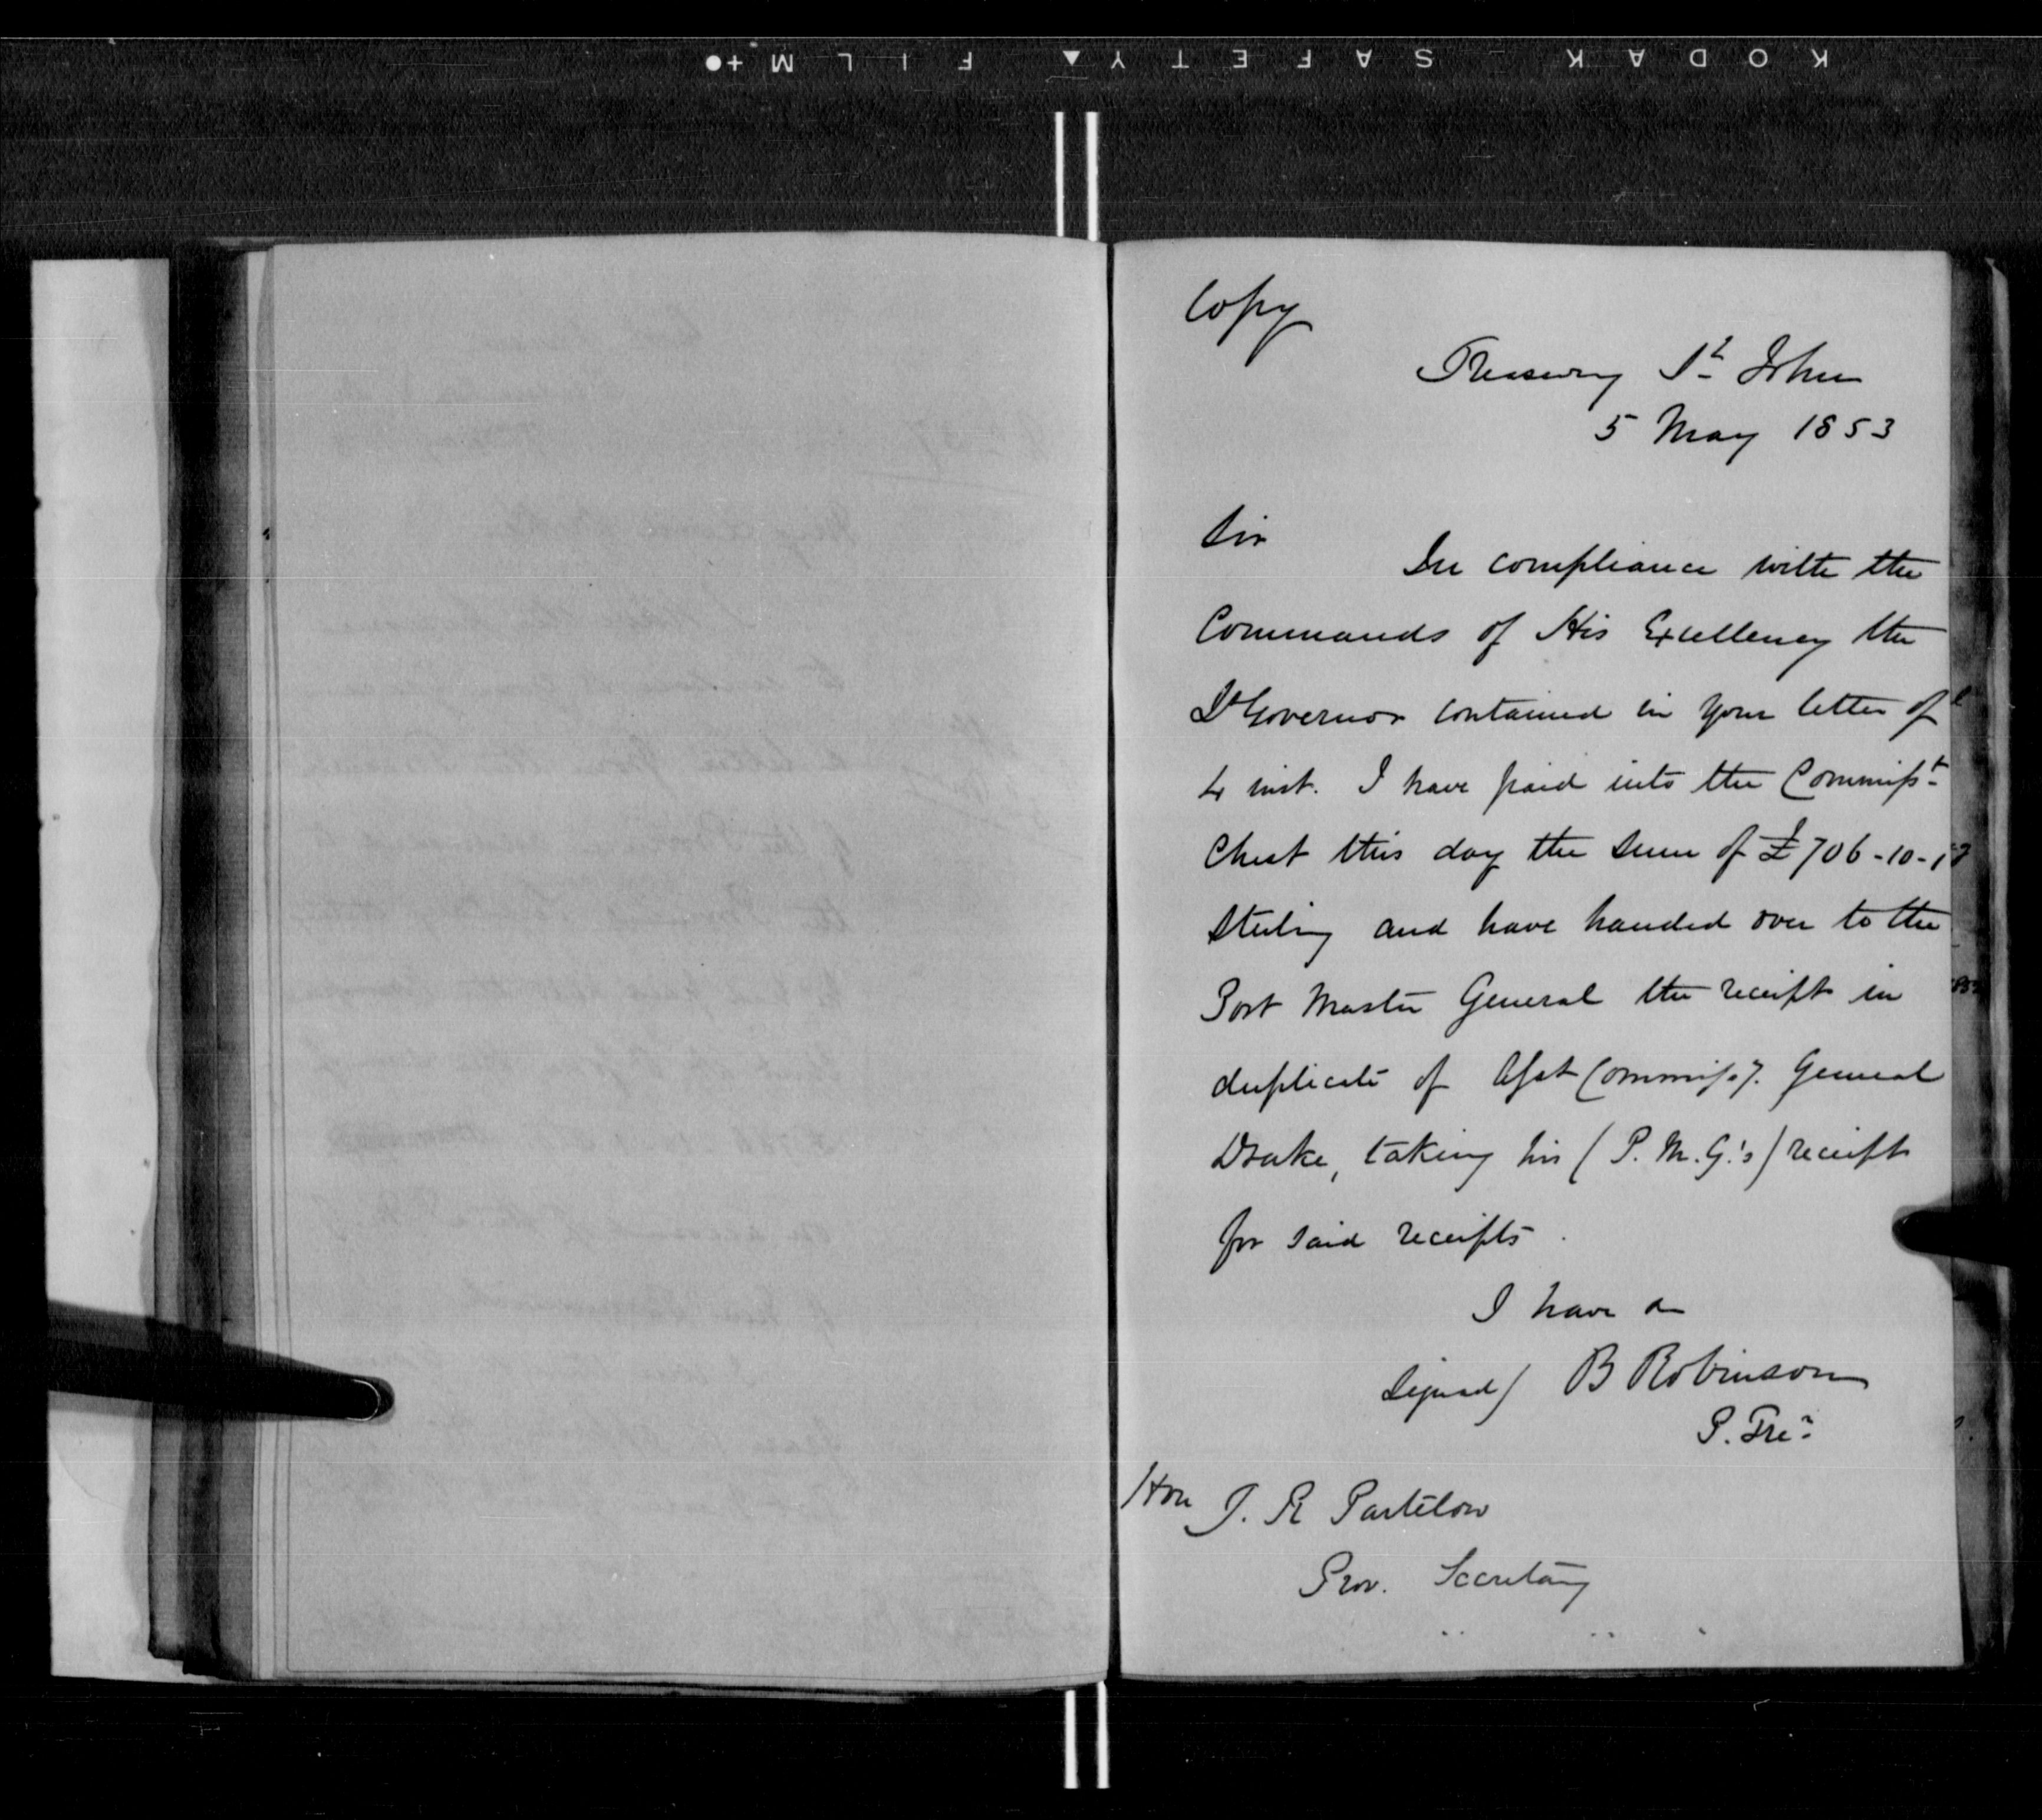 KODAK SAFETY FILM
Copy
Treasury St John
5 May 1853
Sir
In compliance with the
Commands of His Excellency the
Lt Governor contained in your letter of
4 inst. I have paid into the Commisst
Chest this day the sum of £706-10-
Sterling and have handed over to the
Post Master General the receipt in
duplicate of Asst Commissy. General
Drake, taking his (P. M. G.'s) receipt
for said receipts.
I have &
Signed) B Robinson
P. Trer
Hon J. R Partelow
Prov. Secretary